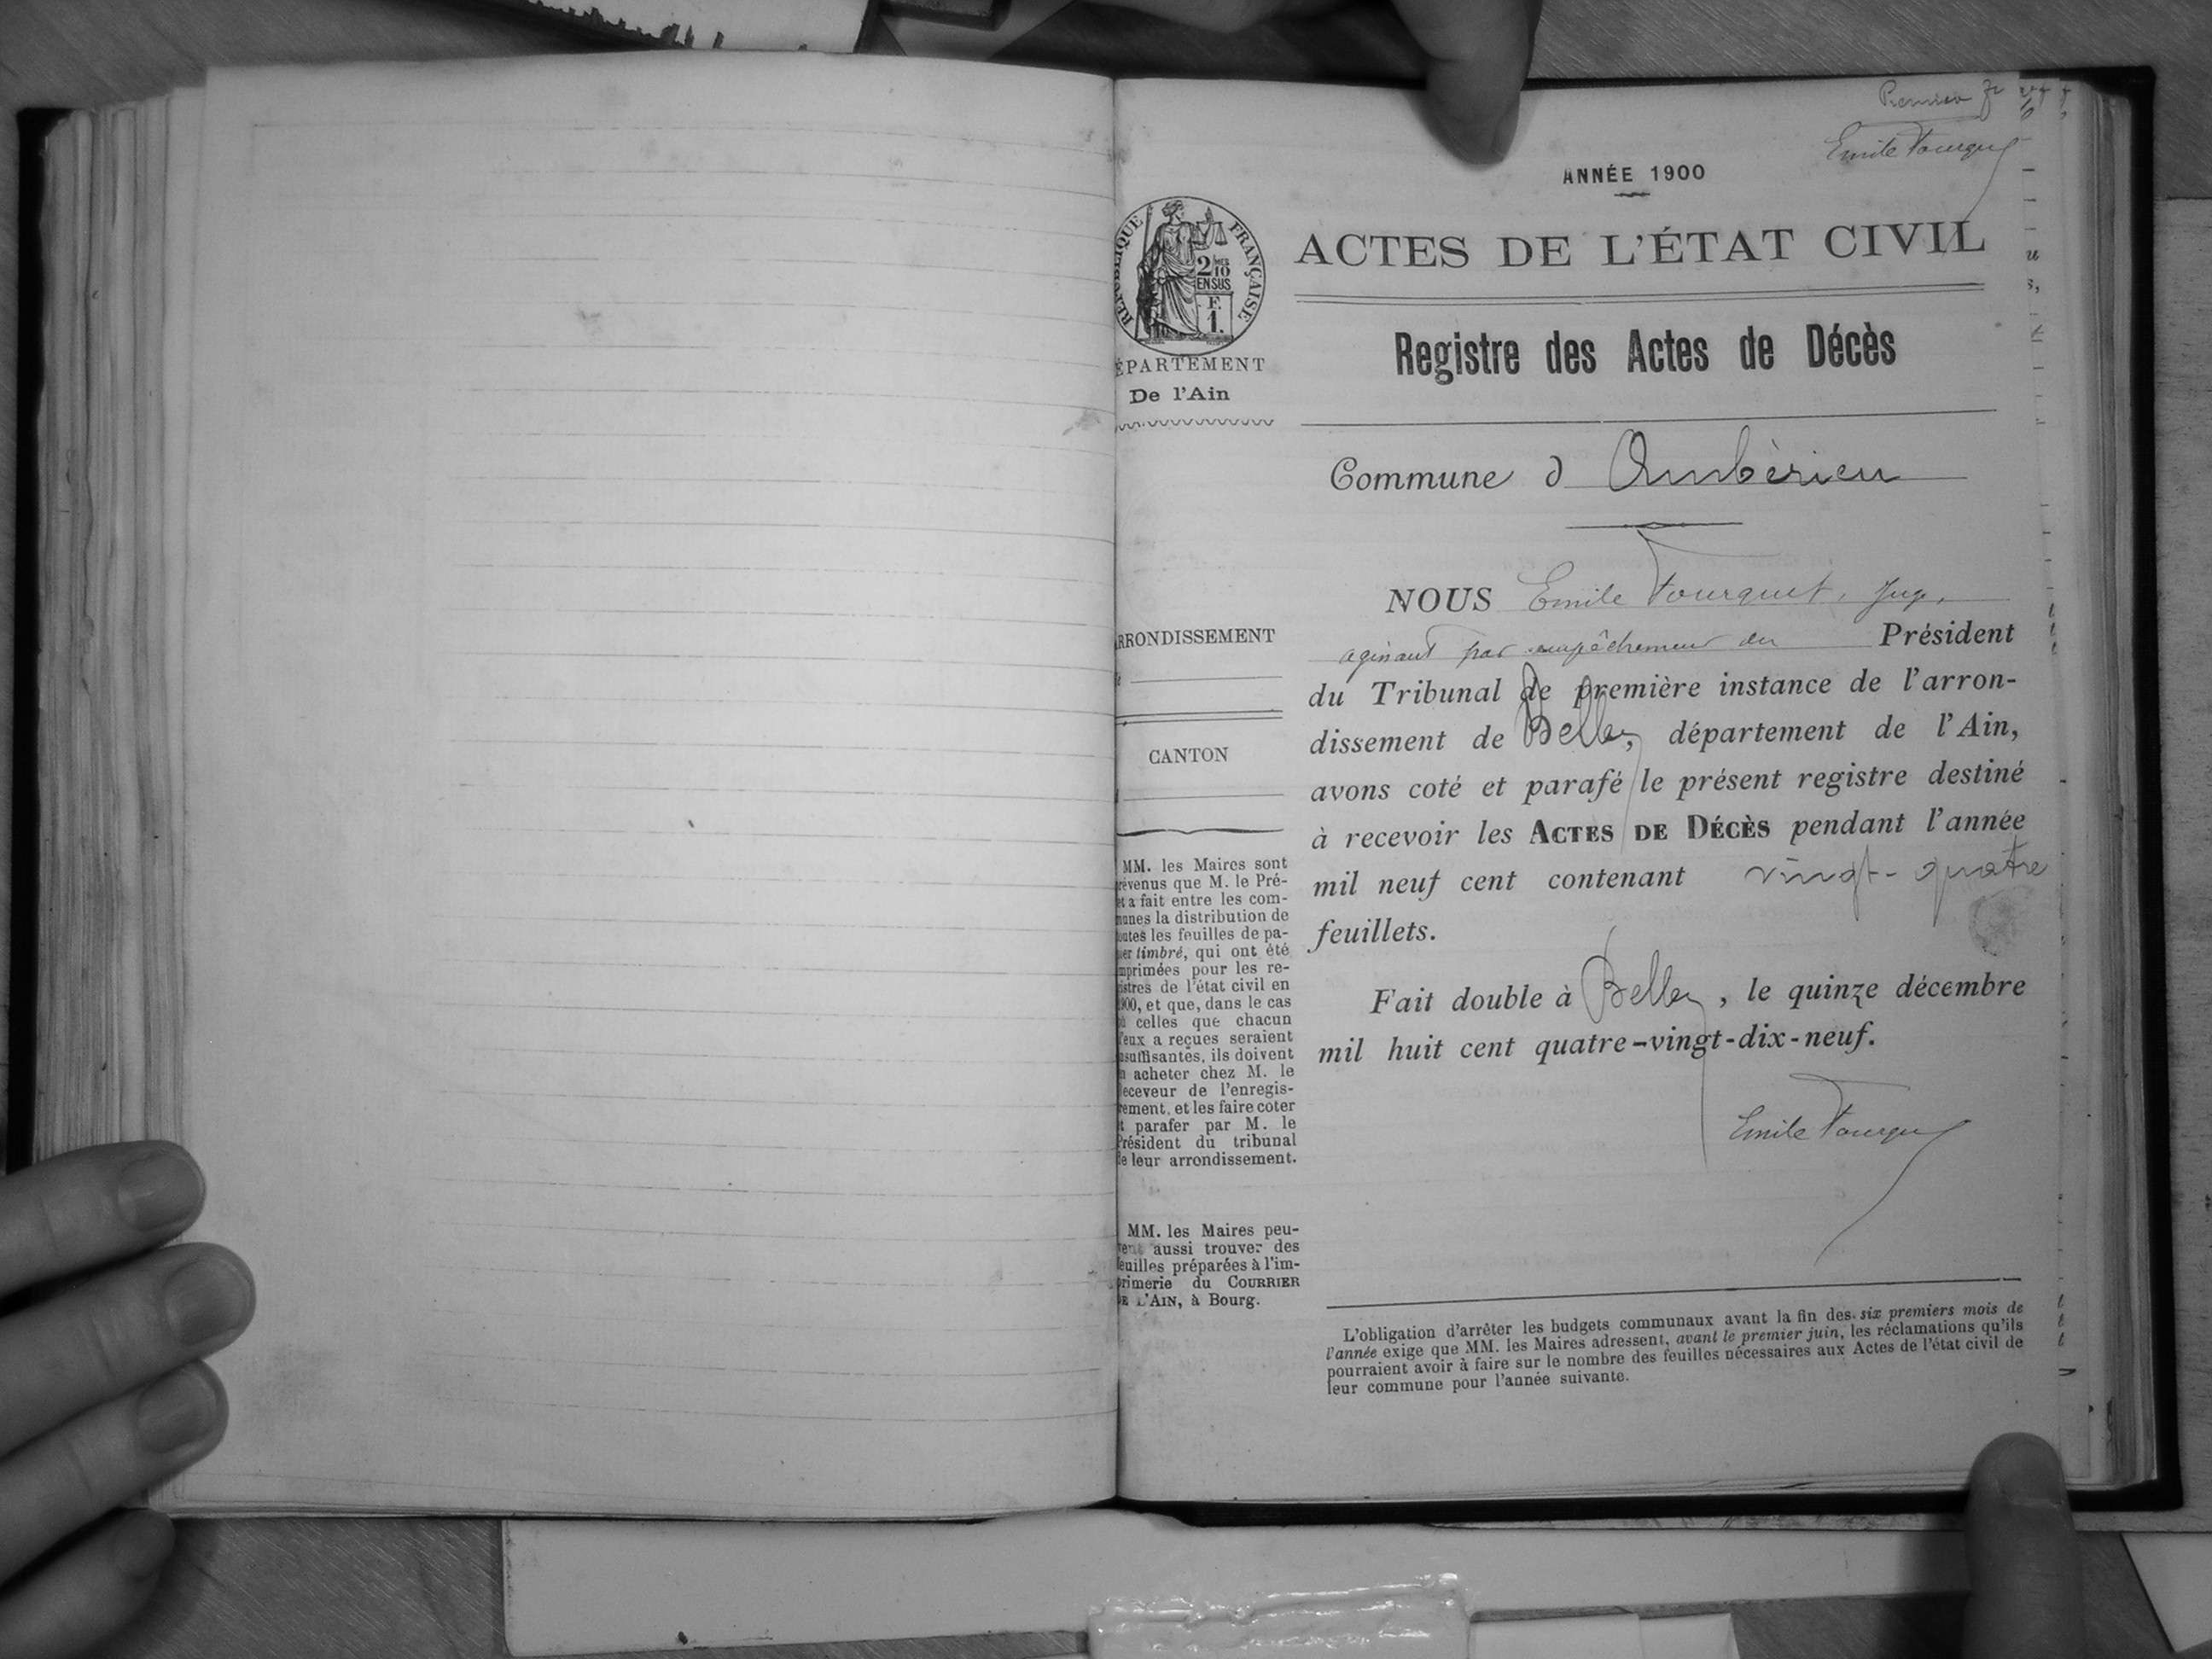 Premier
Emile Fourquet
ANNÉE 1900
RÉPUBLIQUE FRANÇAISE
2/10 MES
EN SUS
F.
1.
ÉPARTEMENT
De l'Ain
ACTES DE L'ÉTAT CIVIL
Registre des Actes de Décès
Commune d Ambérieu
RRONDISSEMENT
CANTON
MM. les Maires sont
révenus que M. le Pré-
et a fait entre les com-
munes la distribution de
outes les feuilles de pa-
ier timbré, qui ont été
mprimées pour les re-
istres de l'état civil en
900, et que, dans le cas
ù celles que chacun
'eux a reçues seraient
nsuffisantes, ils doivent
n acheter chez M. le
eceveur de l'enregis-
rement, et les faire coter
t parafer par M. le
Président du tribunal
de leur arrondissement.
MM. les Maires peu-
vent aussi trouver des
feuilles préparées à l'im-
primerie du COURRIER
DE L'AIN, à Bourg.
NOUS Emile Fourquet, Juge,
agissant par empêchement du Président
du Tribunal de première instance de l'arron-
dissement de Belley, département de l'Ain,
avons coté et parafé le présent registre destiné
à recevoir les ACTES DE DÉCÈS pendant l'année
mil neuf cent contenant vingt-quatre
feuillets.
Fait double à Belley, le quinze décembre
mil huit cent quatre-vingt-dix-neuf.
Emile Fourquet
L'obligation d'arrêter les budgets communaux avant la fin des six premiers mois de
l'année exige que MM. les Maires adressent, avant le premier juin, les réclamations qu'ils
pourraient avoir à faire sur le nombre des feuilles nécessaires aux Actes de l'état civil de
leur commune pour l'année suivante.